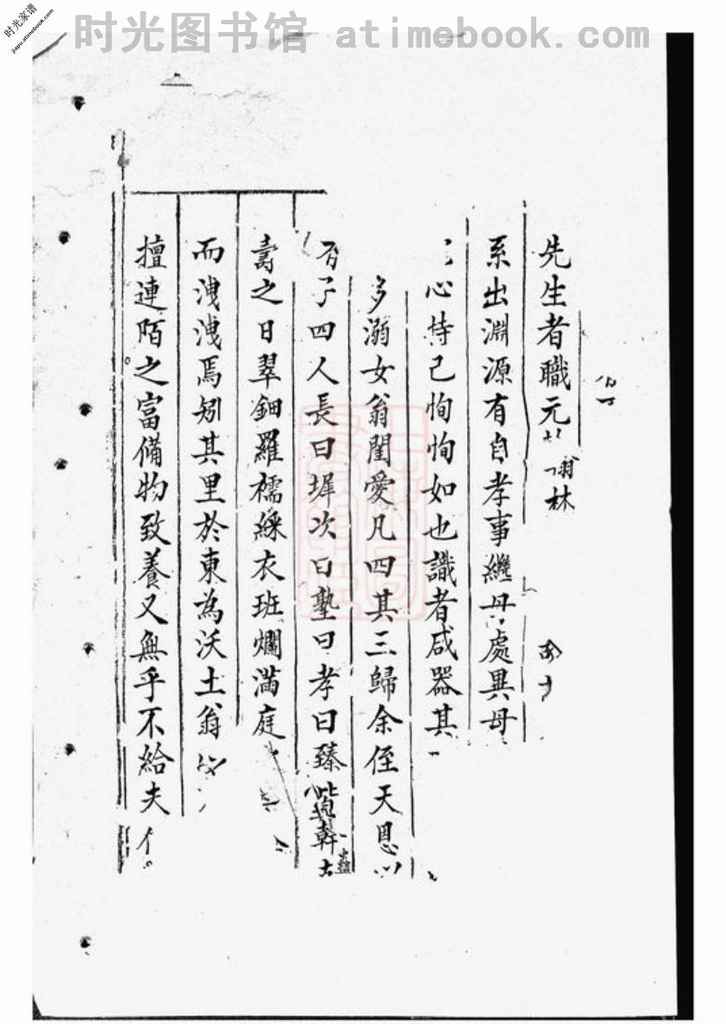 时光图书馆 atimebook.com
时光家谱
先生者職元 翰林
系出淵源有自孝事繼母處異母
心恃己恂恂如也識者咸器其
多溺女翁閨愛凡四其三歸余侄天恩
子四人長曰墀次曰塾曰孝曰臻 幹
壽之日翠鈿羅襦綵衣班爛滿庭
而洩洩焉矧其里於東為沃土翁
擅連陌之富備物致養又無乎不給夫